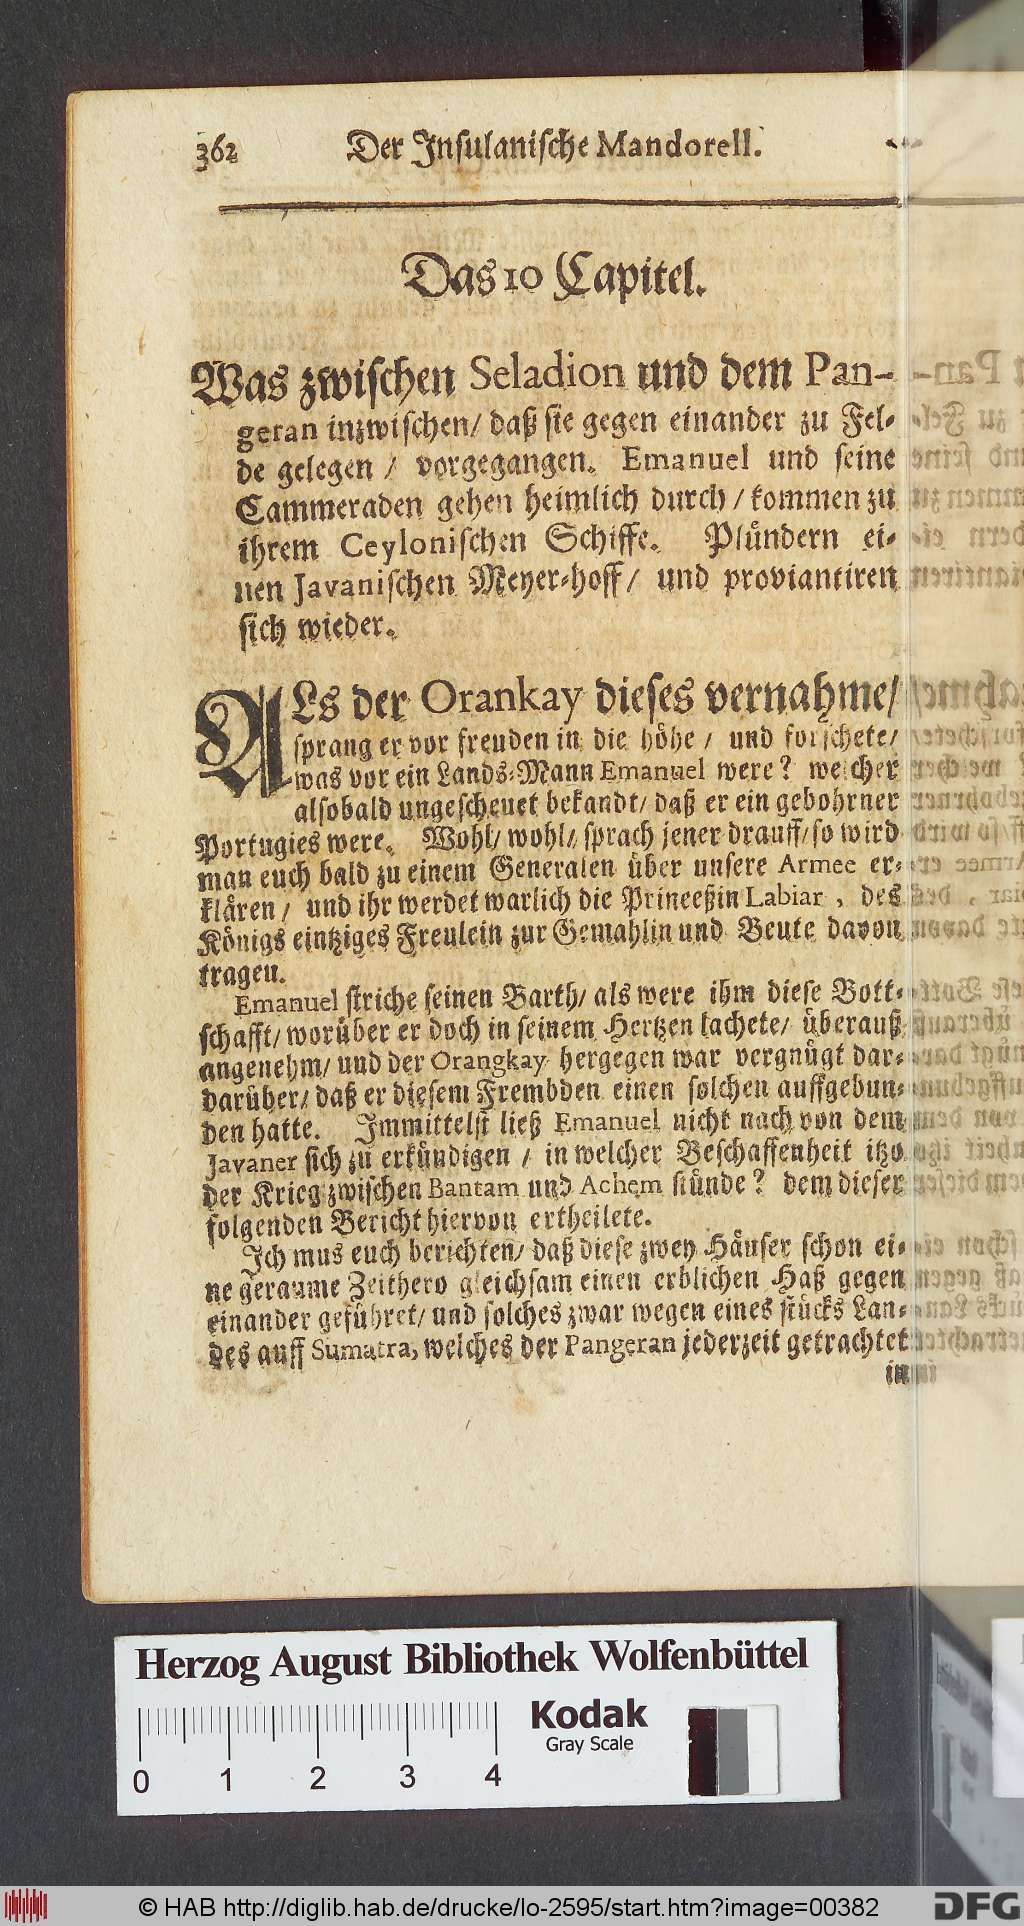 362 Der Insulanische Mandorell.
Das 10 Capitel.
Was zwischen Seladion und dem Pan-
geran inzwischen/ daß sie gegen einander zu Fel-
de gelegen / vorgegangen. Emanuel und seine
Cammeraden gehen heimlich durch / kommen zu
ihrem Ceylonischen Schiffe. Plündern ei-
nen Javanischen Meyer-hoff / und proviantiren
sich wieder.
ALs der Orankay dieses vernahme/
sprang er vor freuden in die höhe / und forschete/
was vor ein Lands-Mann Emanuel were? welcher
alsobald ungescheuet bekandt/ daß er ein gebohrner
Portugies were. Wohl/ wohl/ sprach jener drauff/ so wird
man euch bald zu einem Generalen über unsere Armee er-
klären / und ihr werdet warlich die Princeßin Labiar , des
Königs eintziges Freulein zur Gemahlin und Beute davon
tragen.
Emanuel striche seinen Barth/ als were ihm diese Bott-
schafft/ worüber er doch in seinem Hertzen lachete/ überauß
angenehm/ und der Orangkay hergegen war vergnügt dar-
darüber/ daß er diesem Frembden einen solchen auffgebun-
den hatte. Immittelst ließ Emanuel nicht nach von dem
Javaner sich zu erkündigen / in welcher Beschaffenheit itzo
der Krieg zwischen Bantam und Achem stünde? dem dieser
folgenden Bericht hiervon ertheilete.
Ich mus euch berichten/ daß diese zwey Häuser schon ei-
ne geraume Zeithero gleichsam einen erblichen Haß gegen
einander geführet/ und solches zwar wegen eines stücks Lan-
des auff Sumatra, welches der Pangeran jederzeit getrachtet
in
Herzog August Bibliothek Wolfenbüttel
Kodak
Gray Scale
0 1 2 3 4
© HAB http://diglib.hab.de/drucke/lo-2595/start.htm?image=00382
DFG